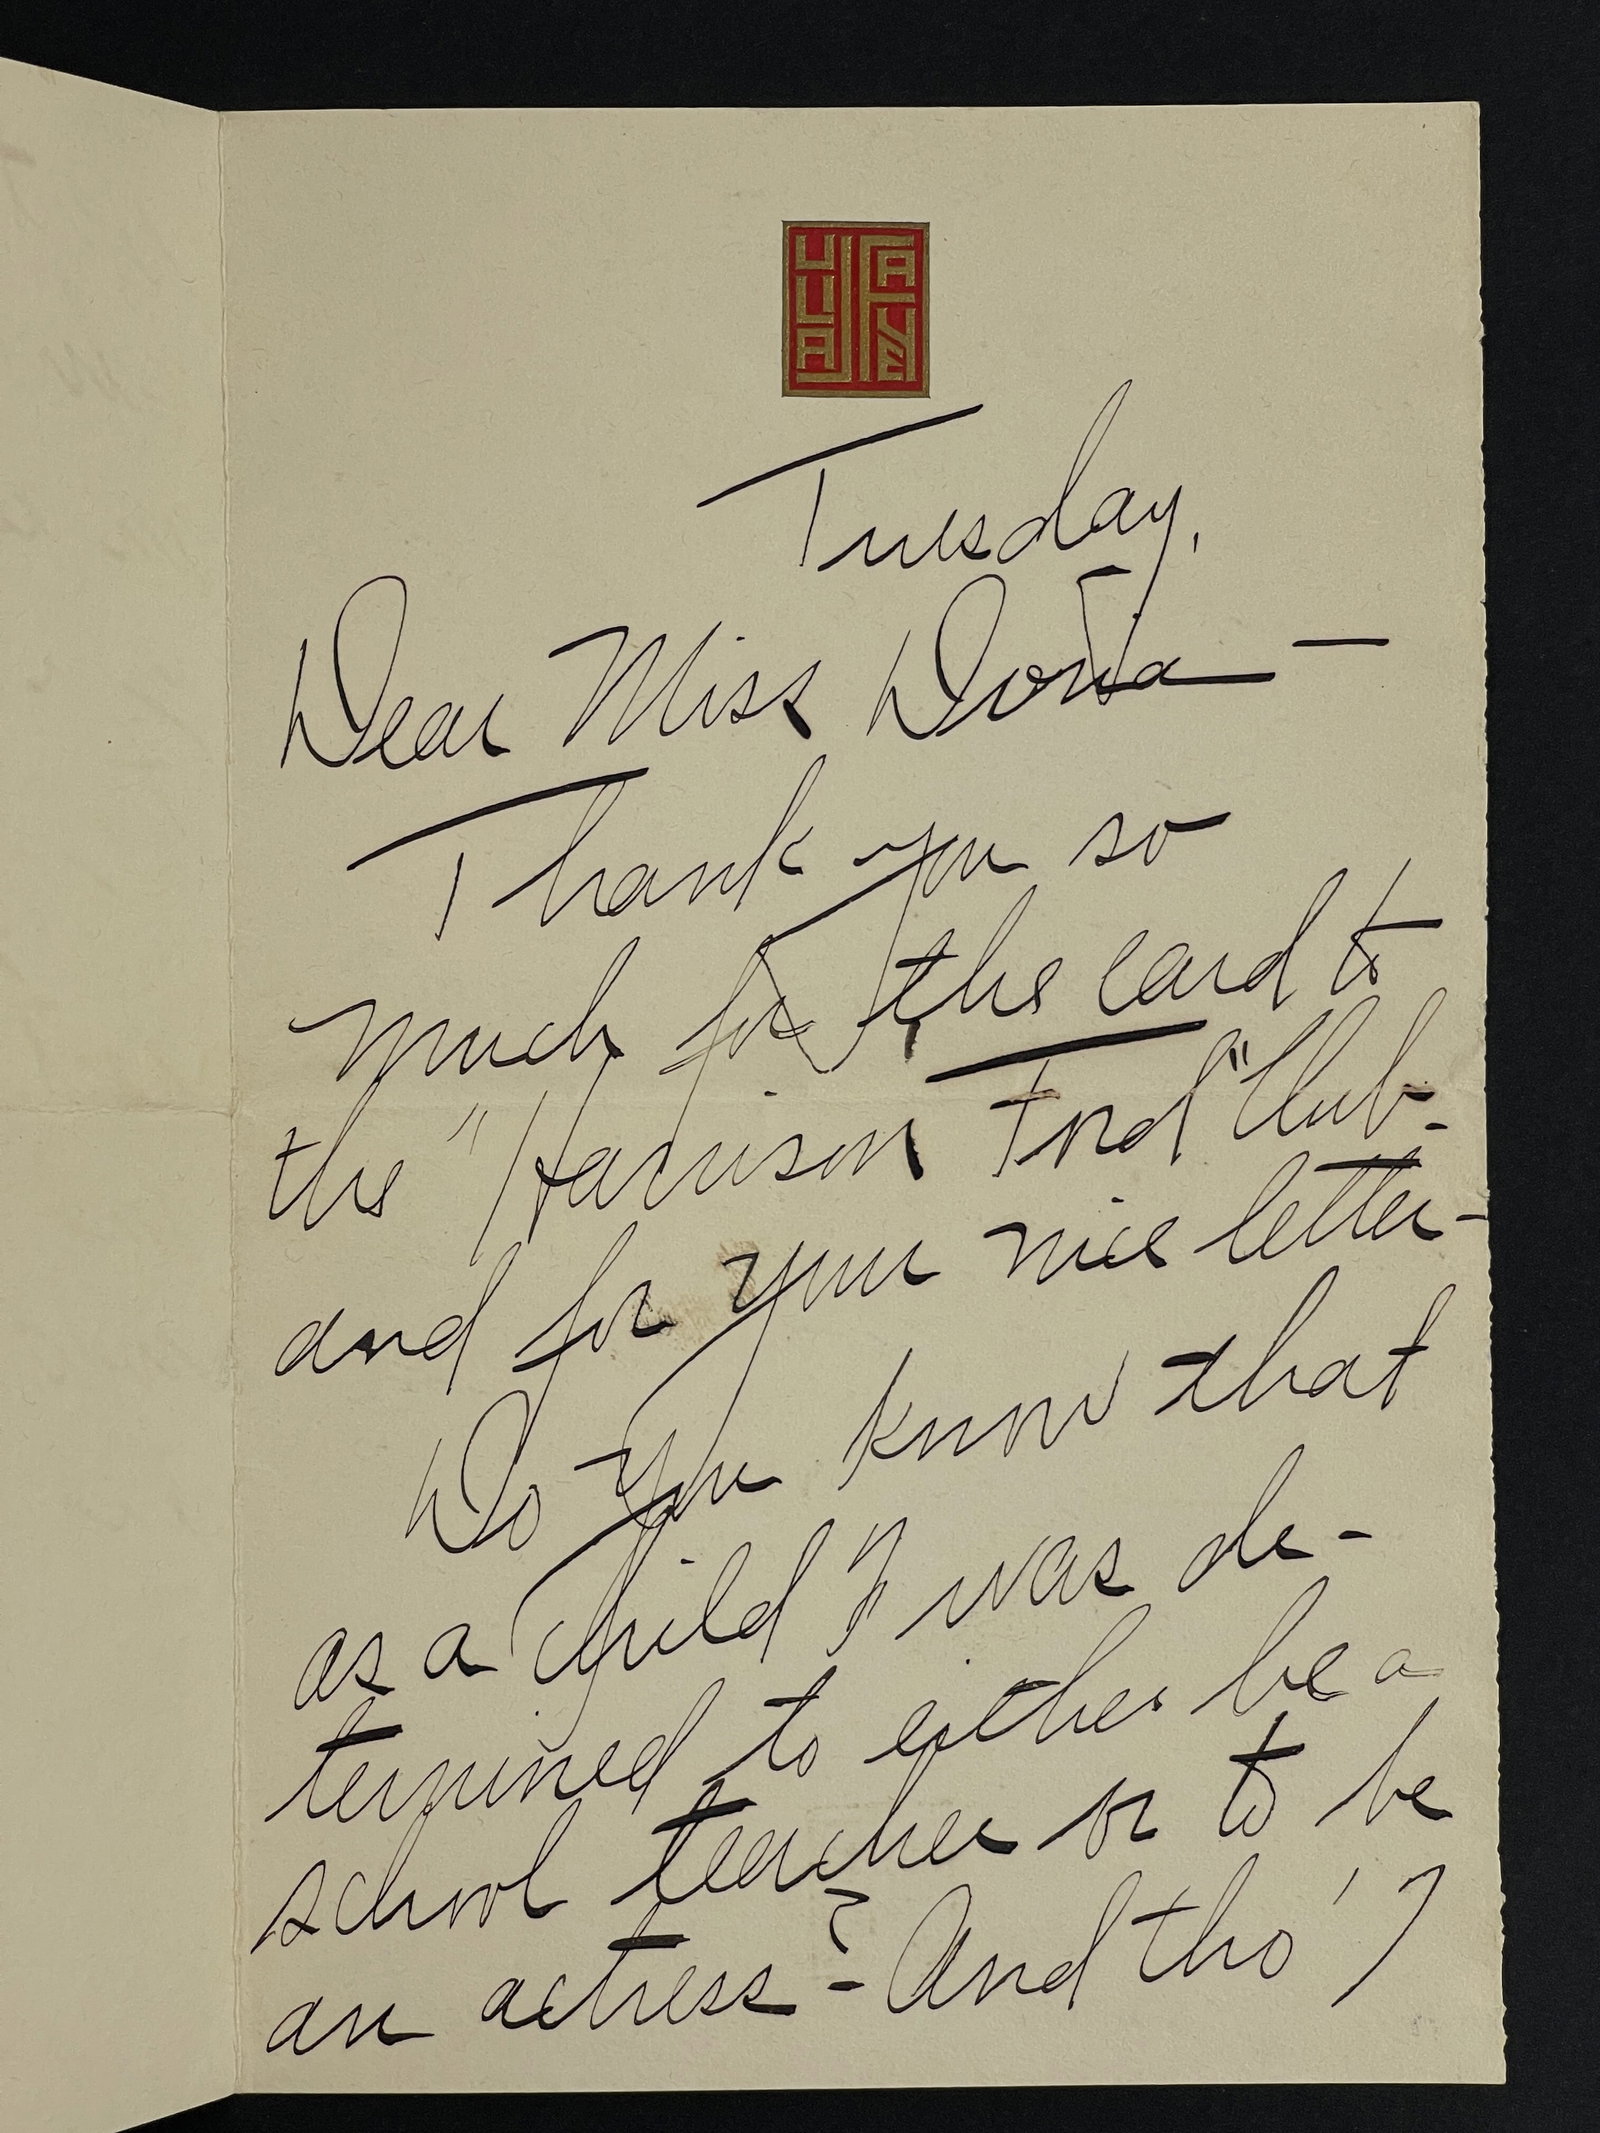 JULIA FAYE
Tuesday,
Dear Miss Doria —
Thank you so
much for the card to
the "Harrison Ford" Club-
and for your nice letter-
Do you know that
as a child I was de-
termined to either be a
school teacher or to be
an actress? - And tho' I